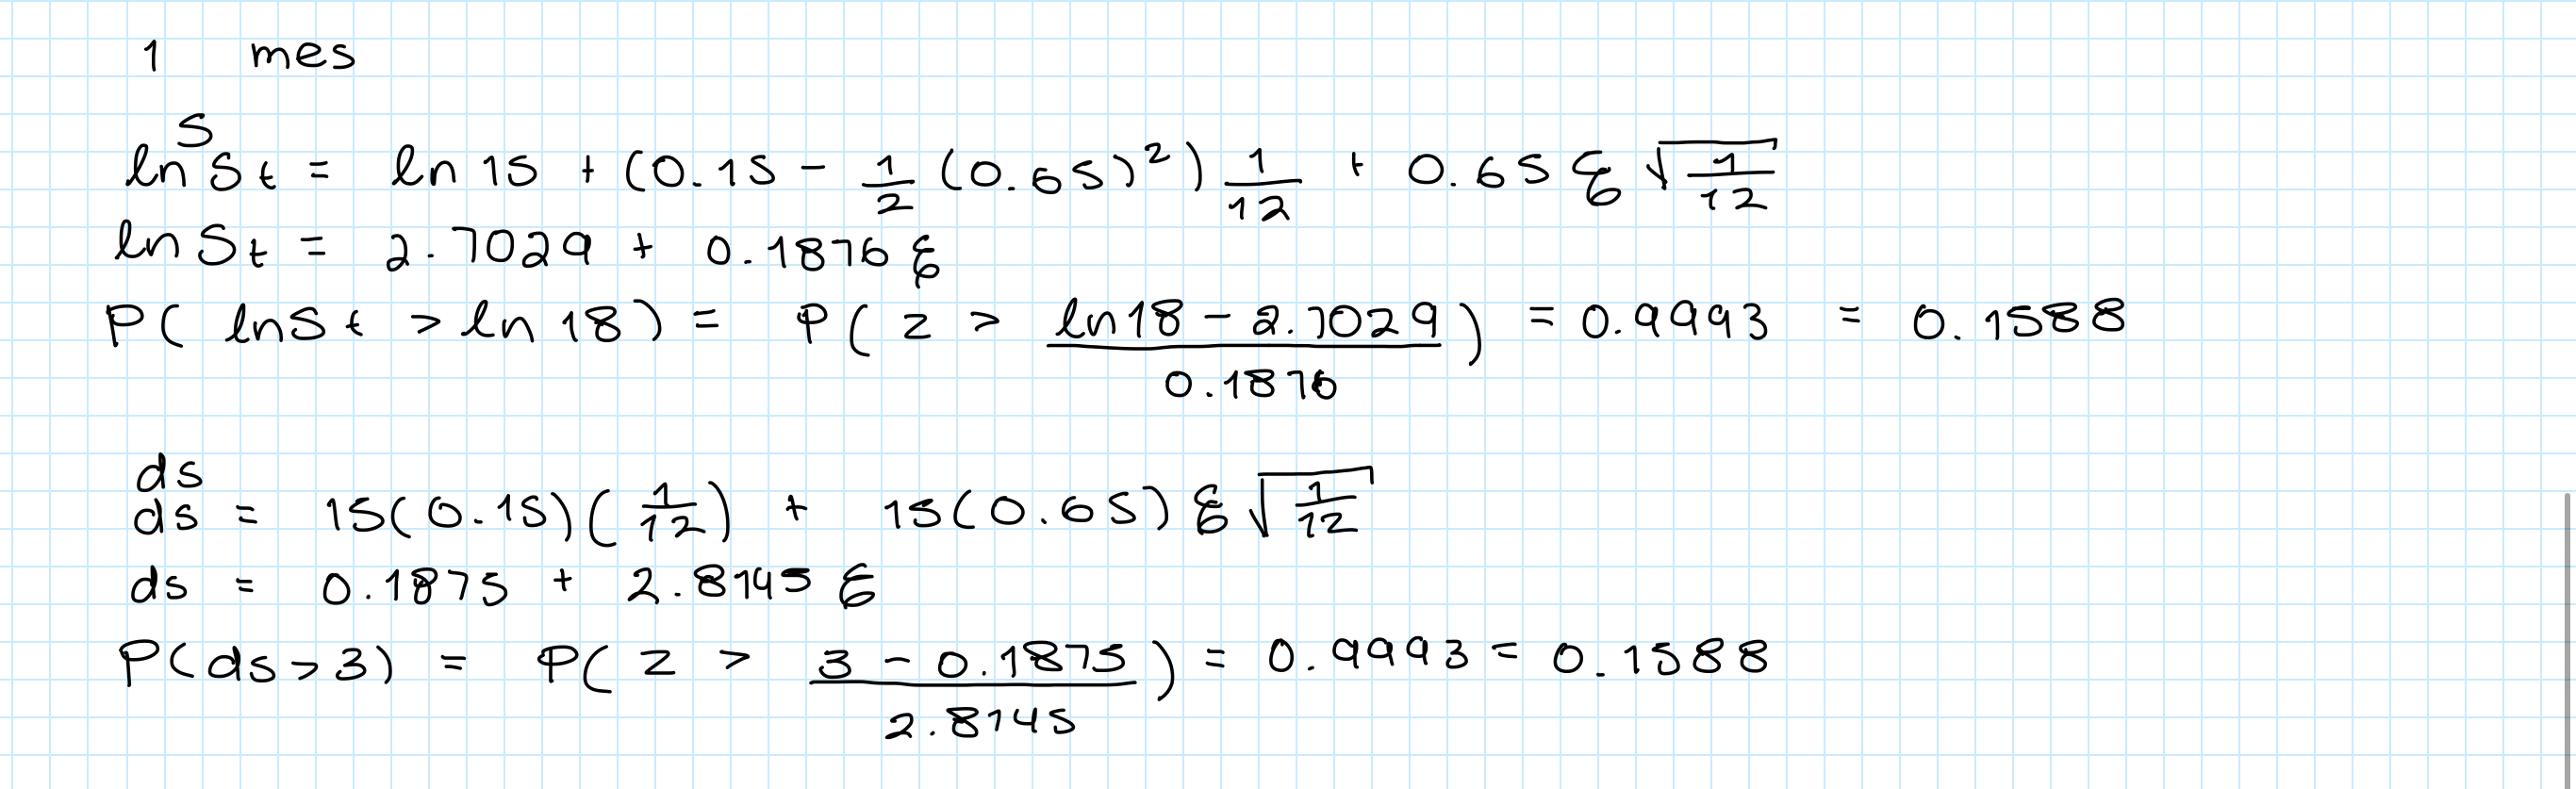 1 mes
S
ln St = ln 15 + (0.15 - 1/2 (0.65)²) 1/12 + 0.65 ε √(1/12)
ln St = 2.7029 + 0.1876 ε
P( ln St > ln 18 ) = P( z > (ln 18 - 2.7029)/0.1876 ) = 0.9993 = 0.1588
ds
ds = 15(0.15)(1/12) + 15(0.65) ε √(1/12)
ds = 0.1875 + 2.8145 ε
P(ds > 3) = P( z > (3 - 0.1875)/2.8145 ) = 0.9993 = 0.1588